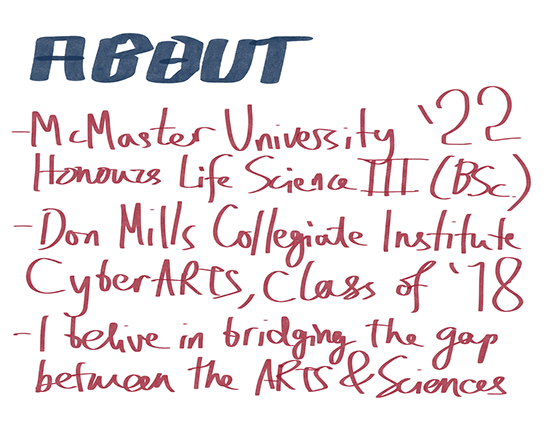 ABOUT
-McMaster University '22
Honours Life Science III (BSc.)
-Don Mills Collegiate Institute
CyberARTS, Class of '18
-I belive in bridging the gap
between the ARTS & Sciences